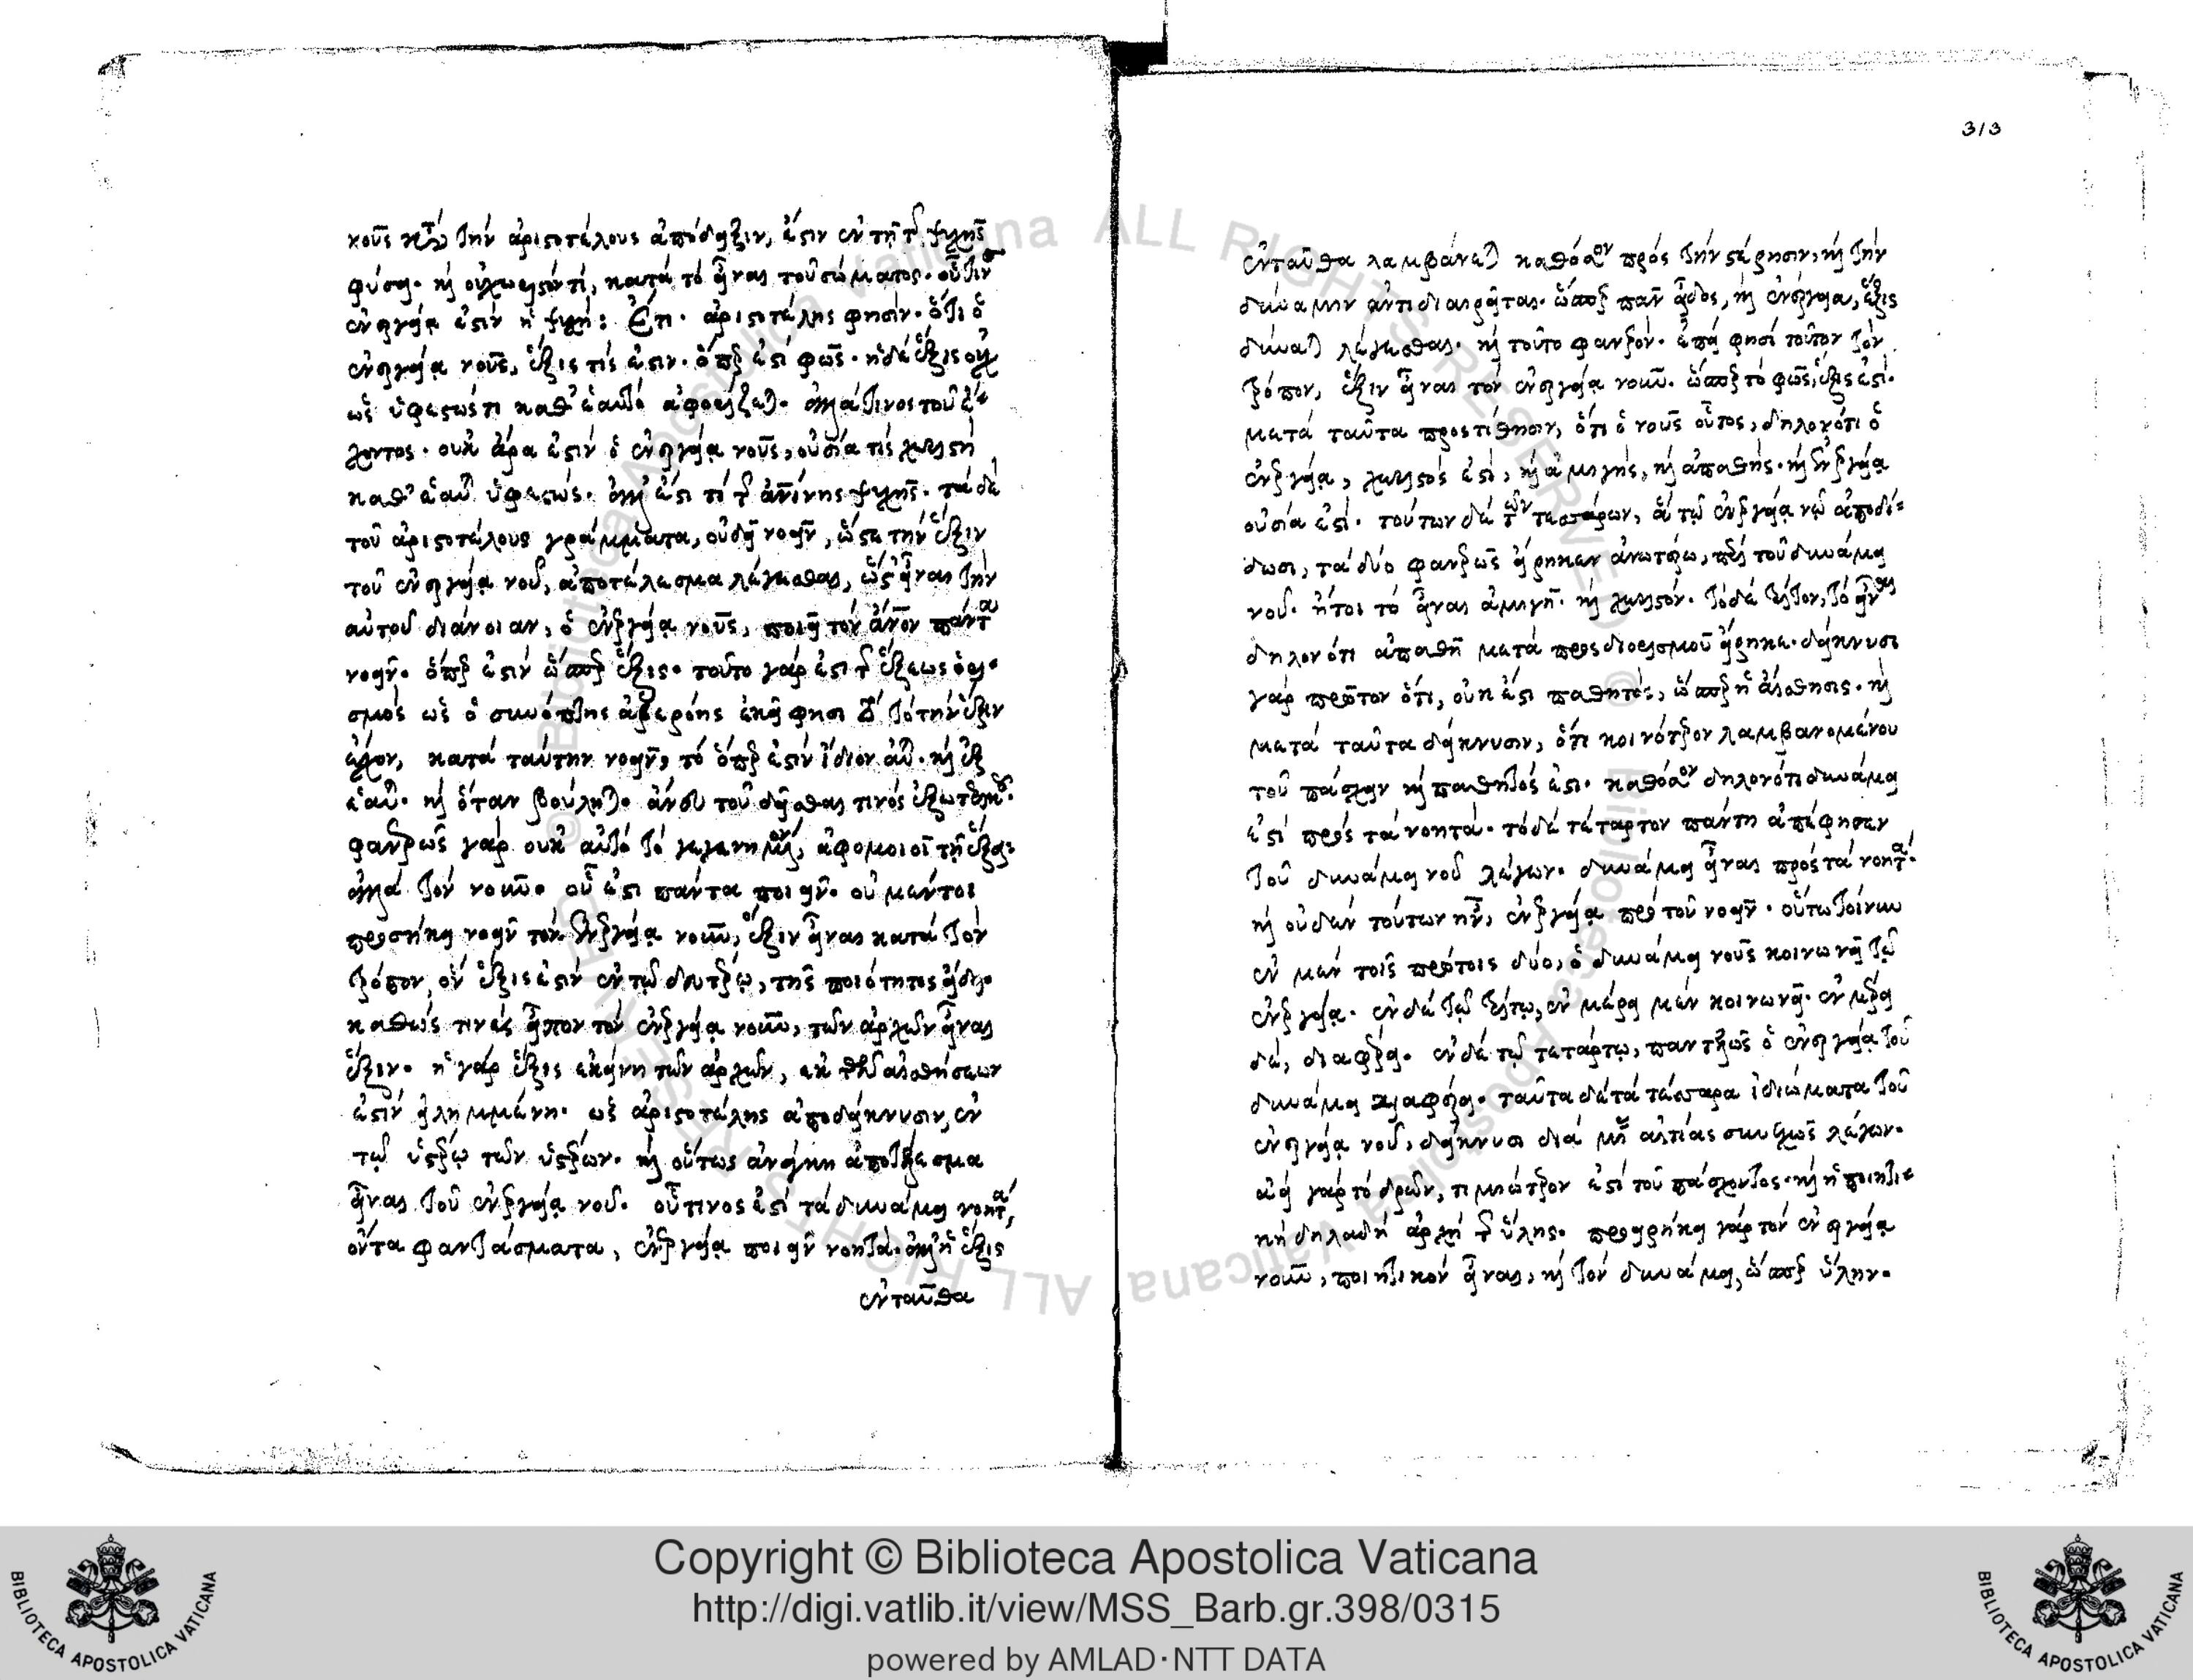 κοῦς κατὰ τὴν ἀριστοτέλους ἀπόδειξιν, ἐστὶν ἐν τῇ τῆς ψυχῆς
φύσει. καὶ οὐ χωριστόν τί, κατὰ τὸ εἶναι τοῦ σώματος.
ἐνεργεία ἐστὶν ἡ ψυχή: Ἔτι. ἀριστοτέλης φησίν. ὅτι ὁ
ἐνεργεία νοῦς, ἕξις τίς ἐστιν. ὅπερ ἐστὶ φῶς. ἡ δὲ ἕξις οὐχ
ὡς ὑφεστώς τι καθ' ἑαυτὸ ἀφορίζεται. ἀλλά τινος τοῦ ἔ-
χοντος. οὐκ ἄρα ἐστὶν ὁ ἐνεργεία νοῦς, οὐσία τίς χωριστὴ
καθ' ἑαυτ ὑφεστώς. ἀλλ' ἐστί τι τῆς ἀνίνης ψυχῆς. τὰ δὲ
τοῦ ἀριστοτέλους γράμματα, οὐδεῖ νοεῖν, ὥστε τὴν ἕξιν
τοῦ ἐνεργεία νοῦ, ἀποτέλεσμα λέγεσθαι, ὡς εἶναι τὴν
αὐτοῦ διάνοιαν, ὁ ἐνεργεία νοῦς, ποιεῖ τὸν ἄνον πάντα
νοεῖν. ὅπερ ἐστὶν ὥσπερ ἕξις. τοῦτο γάρ ἐστι τῆς ἕξεως ὁρι-
σμός ὡς ὁ συνόπτης ἀβερόης ἐκεῖ φησι διὰ τὸ τὴν ἕξιν
ἔχον, κατὰ ταύτην νοεῖν, τὸ ὅπερ ἐστὶν ἴδιον αὐτ. καὶ ἐξ
ἑαυτ. καὶ ὅταν βούληται. ἄνευ τοῦ δεῖσθαι τινὸς ἐξωτερικοῦ.
φανερῶς γὰρ οὐκ αὐτὸ τὸ γεγενημένον, ἀφομοιοῖ τῇ ἕξει:
ἀλλὰ τὸν νοῦν. οὗ ἐστι πάντα ποιεῖν. οὐ μέντοι
προσήκει νοεῖν τὸν ἐνεργεία νοῦν, ἕξιν εἶναι κατὰ τὸν
τρόπον, ὃν ἕξις ἐστὶν ἐν τῷ δευτέρῳ, τῆς ποιότητος εἴδει.
καθώς τινες εἶπον τὸν ἐνεργεία νοῦν, τῶν ἀρχῶν εἶναι
ἕξιν. ἡ γὰρ ἕξις ἐκείνη τῶν ἀρχῶν, ἐκ τῶν αἰσθήσεων
ἐστὶν εἰλημμένη. ὡς ἀριστοτέλης ἀποδείκνυσιν, ἐν
τῷ ὑστέρῳ τῶν ὑστέρων. καὶ οὕτως ἀνάγκη ἀποτέλεσμα
εἶναι τοῦ ἐνεργεία νοῦ. οὗτινος ἐστὶ τὰ δυνάμει νοητά,
ὄντα φαντάσματα, ἐνεργεία ποιεῖν νοητά. ἀλλ' ἡ ἕξις
ἐνταῦθα
313
ἐνταῦθα λαμβάνεται καθόσον πρὸς τὴν στέρησιν, καὶ τὴν
δύναμιν ἀντιδιαιρεῖται. ὥσπερ πᾶν εἶδος, καὶ ἐνέργεια, ἕξις
δύναται λέγεσθαι. καὶ τοῦτο φανερόν. ἐπεὶ φησὶ τοῦτον τὸν
τρόπον, ἕξιν εἶναι τὸν ἐνεργεία νοῦν. ὥσπερ τὸ φῶς, ἕξις ἐστί.
μετὰ ταῦτα προστίθησιν, ὅτι ὁ νοῦς οὗτος, δηλονότι ὁ
ἐνεργεία, χωριστός ἐστι, καὶ ἀμιγής, καὶ ἀπαθής. καὶ ἐνεργεία
οὐσία ἐστί. τούτων δὲ τῶν τεσσάρων, ἃ τῷ ἐνεργεία νῷ ἀποδί-
δωσι, τὰ δύο φανερῶς εἴρηκεν ἀνωτέρω, περὶ τοῦ δυνάμει
νοῦ. ἤτοι τὸ εἶναι ἀμιγῆ. καὶ χωριστόν. τὸ δὲ τρίτον, τὸ εἶναι
δηλονότι ἀπαθῆ μετὰ προσδιορισμοῦ εἴρηκε. δείκνυσι
γὰρ πρῶτον ὅτι, οὐκ ἔστι παθητός, ὥσπερ ἡ αἴσθησις. καὶ
μετὰ ταῦτα δείκνυσιν, ὅτι κοινότερον λαμβανομένου
τοῦ πάσχειν καὶ παθητός ἐστι. καθόσον δηλονότι δυνάμει
ἐστὶ πρὸς τὰ νοητά. τὸ δὲ τέταρτον πάντη ἀπέφησεν
τοῦ δυνάμει νοῦ λέγων. δυνάμει εἶναι πρὸς τὰ νοητά.
καὶ οὐδὲν τούτων ἦν, ἐνεργεία πρὸ τοῦ νοεῖν. οὕτω τοίνυν
ἐν μὲν τοῖς πρώτοις δύο, ὁ δυνάμει νοῦς κοινωνεῖ τῷ
ἐνεργεία. ἐν δὲ τῷ τρίτῳ, ἐν μέρει μὲν κοινωνεῖ. ἐν μέρει
δέ, διαφέρει. ἐν δὲ τῷ τετάρτῳ, παντελῶς ὁ ἐνεργεία τοῦ
δυνάμει διαφέρει. ταῦτα δὲ τὰ τέσσαρα ἰδιώματα τοῦ
ἐνεργεία νοῦ, δείκνυσι διὰ μιᾶς αἰτίας συνεχῶς λέγων.
αἰεὶ γὰρ τὸ δρῶν, τιμιώτερον ἐστὶ τοῦ πάσχοντος. καὶ ἡ ποιητι-
κὴ δηλαδὴ ἀρχὴ τῆς ὕλης. προειρήκει γὰρ τὸν ἐνεργεία
νοῦν, ποιητικὸν εἶναι, καὶ τὸν δυνάμει, ὥσπερ ὕλην.
Copyright © Biblioteca Apostolica Vaticana
http://digi.vatlib.it/view/MSS_Barb.gr.398/0315
powered by AMLAD·NTT DATA
BIBLIOTECA APOSTOLICA VATICANA
BIBLIOTECA APOSTOLICA VATICANA